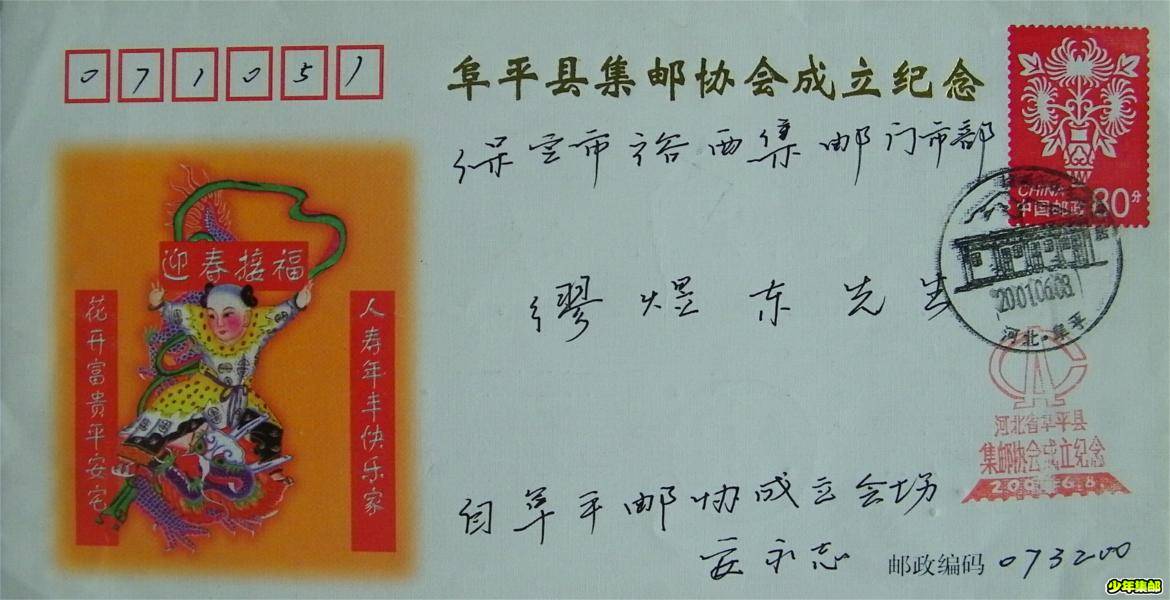 071051
阜平县集邮协会成立纪念
保定市裕西集邮门市部
CHINA
中国邮政 80分
缪煜东先生
2001.06.08
河北·阜平
河北省阜平县
集邮协会成立纪念
2001.6.8.
迎春接福
花开富贵平安宅
人寿年丰快乐家
自阜平邮协成立会场
安永志 邮政编码 073200
少年集邮